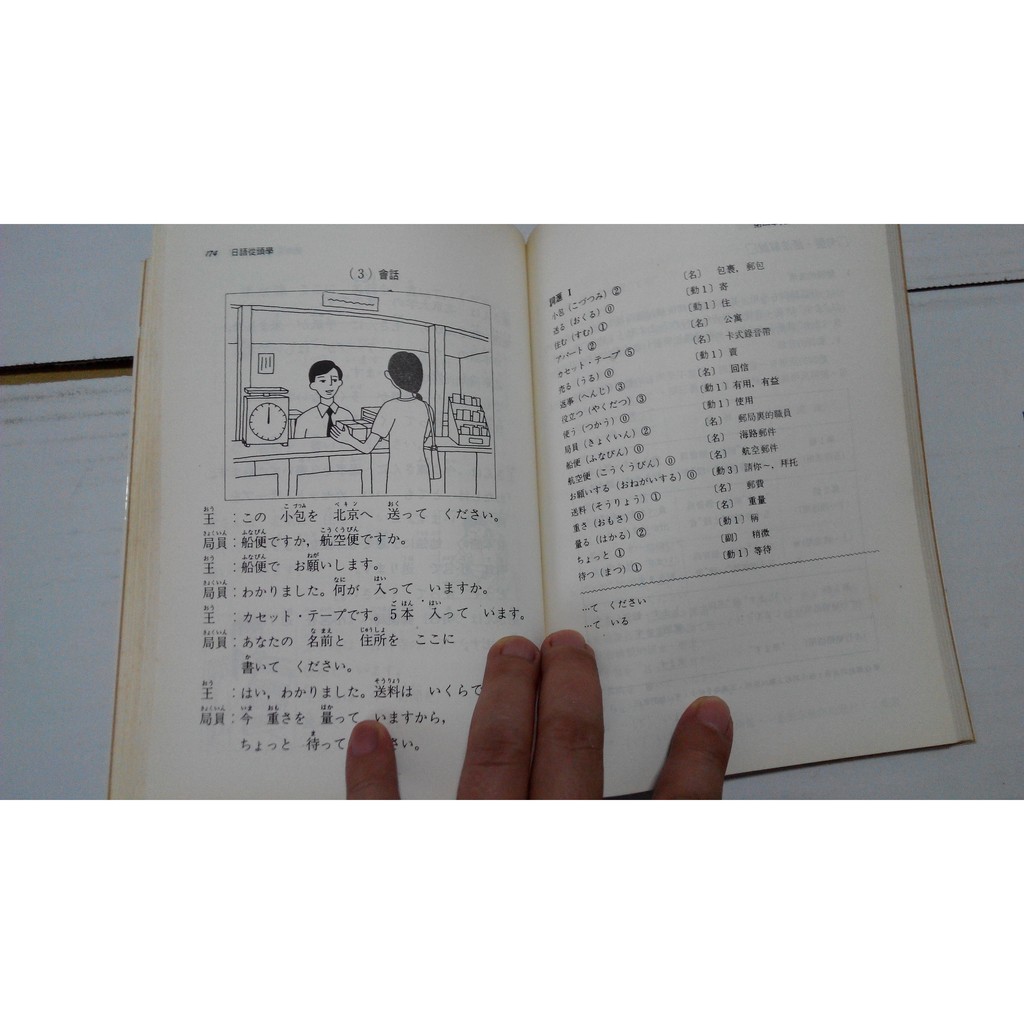 174 日語從頭學
(3) 會話
王：この 小包を 北京へ 送って ください。
局員：船便ですか，航空便ですか。
王：船便で お願いします。
局員：わかりました。何が 入って いますか。
王：カセット・テープです。5本 入って います。
局員：あなたの 名前と 住所を ここに
書いて ください。
王：はい，わかりました。送料は いくらで
局員：今 重さを 量って いますから，
ちょっと 待って さい。
I
小包（こづつみ）② 〔名〕 包裹，郵包
送る（おくる）⓪ 〔動1〕寄
住む（すむ）① 〔動1〕住
アパート② 〔名〕 公寓
カセット・テープ⑤ 〔名〕 卡式錄音帶
売る（うる）⓪ 〔動1〕賣
返事（へんじ）③ 〔名〕 回信
役立つ（やくだつ）③ 〔動1〕有用，有益
使う（つかう）⓪ 〔動1〕使用
局員（きょくいん）② 〔名〕 郵局裏的職員
船便（ふなびん）⓪ 〔名〕 海路郵件
航空便（こうくうびん）⓪ 〔名〕 航空郵件
お願いする（おねがいする）⓪ 〔動3〕請你～，拜托
送料（そうりょう）① 〔名〕 郵費
重さ（おもさ）⓪ 〔名〕 重量
量る（はかる）② 〔動1〕稱
ちょっと① 〔副〕 稍微
待つ（まつ）① 〔動1〕等待
…て ください
…て いる